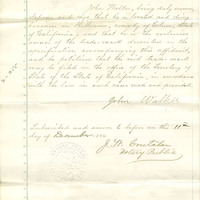 John Walter, being duly sworn,
deposes and says that he is located and doing
business in Williams, county of Colusa, State
of California, and that he is the exclusive
owner of the trade-mark described in the
specification accompanying this affidavit,
and he petitions that the said trade-mark
may be filed in the office of the Secretary of
State of the State of California, in accordance
with the law in such cases made and provided.
John Walter
Subscribed and sworn to before me this 11th
day of December 188
J. W.
Notary Public